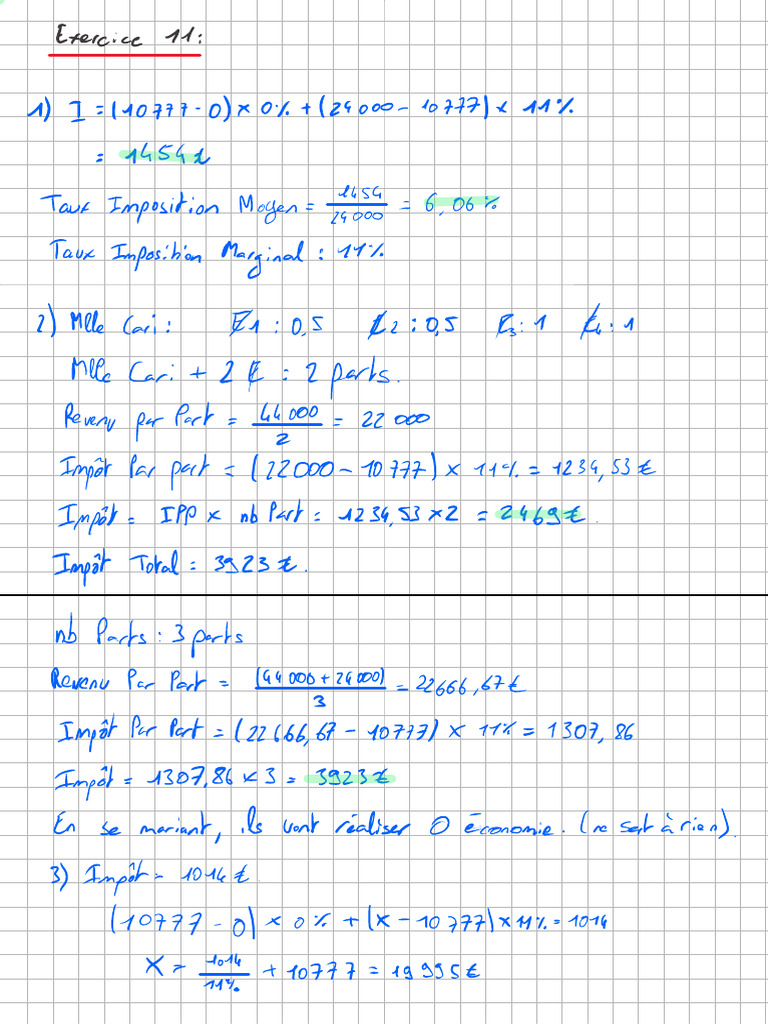 Exercice 11:
1) I = (10777-0) × 0% + (24000 - 10777) × 11%
= 1454€
Taux Imposition Moyen = 1454/24000 = 6,06%
Taux Imposition Marginal : 11%
2) Mlle Cari : E1 : 0,5 E2 : 0,5 E3 : 1 E4 : 1
Mlle Cari + 2 E : 2 parts.
Revenu par Part = 44000/2 = 22000
Impôt Par part = (22000 - 10777) × 11% = 1234,53€
Impôt = IPP × nb Part = 1234,53 × 2 = 2469€.
Impôt Total = 3923€.
nb Parts : 3 parts
Revenu Par Part = (44000 + 24000)/3 = 22666,67€
Impôt Par Part = (22666,67 - 10777) × 11% = 1307,86
Impôt = 1307,86 × 3 = 3923€
En se mariant, ils vont réaliser 0 économie. (ne sert à rien).
3) Impôt = 1014€
(10777 - 0) × 0% + (x - 10777) × 11% = 1014
X = 1014/11% + 10777 = 19995€